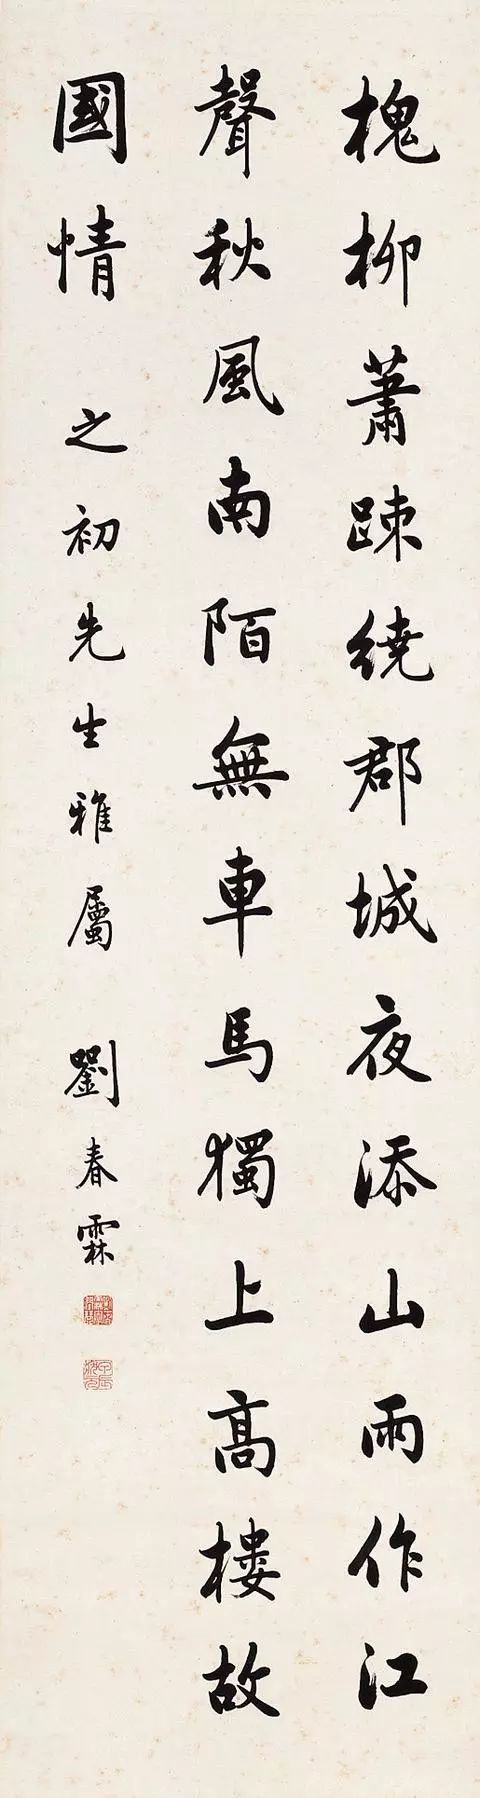 槐柳蕭踈繞郡城夜添山雨作江
聲秋風南陌無車馬獨上高樓故
國情
之初先生雅屬 劉春霖